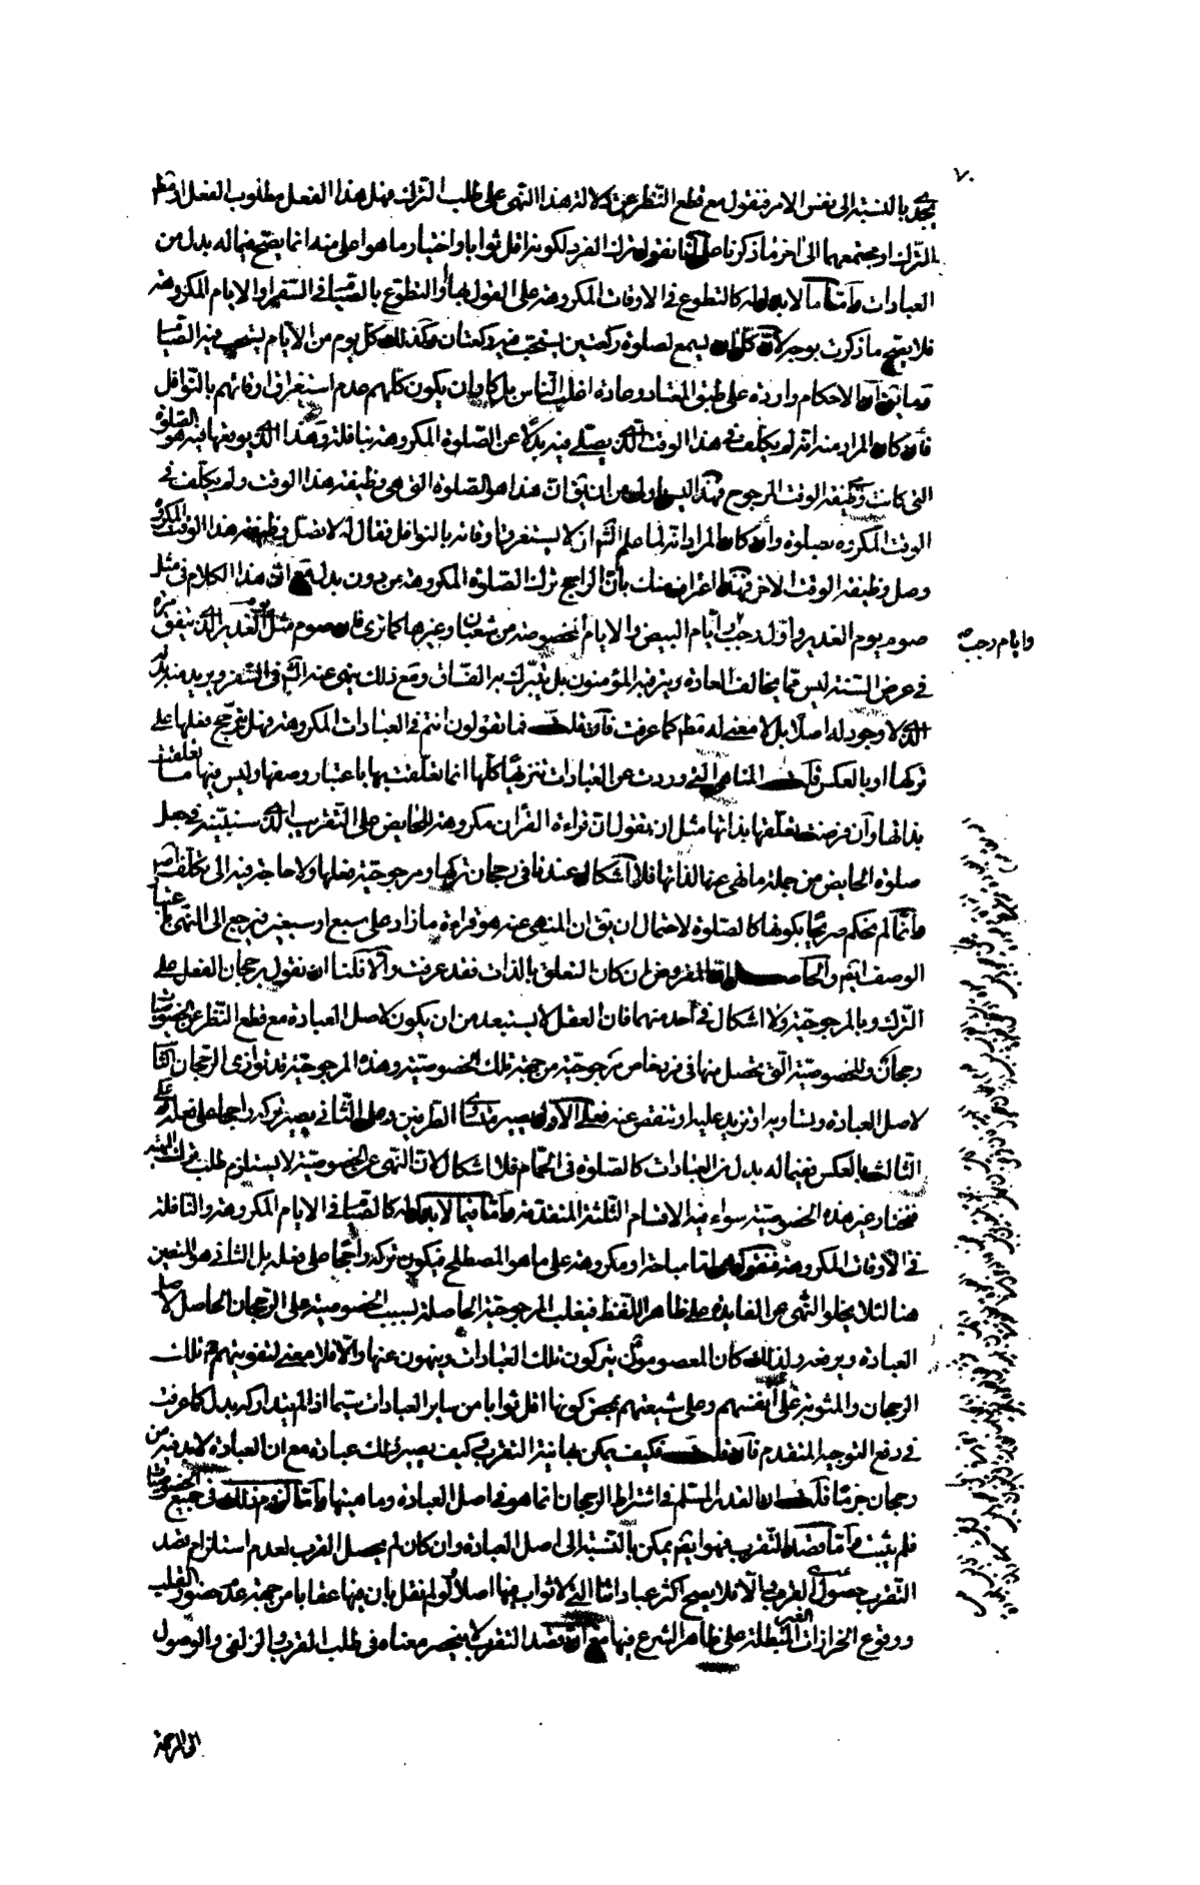 ٧٠
يجدى بالنسبة الى نفس الامر فنقول مع قطع النظر عن دلالة هذا النهى على طلب الترك فهل هذا الفعل مطلوب الفعل او مط
الترك او مجتمعهما الى اخر ما ذكرنا على انا نقول ترك الفرد لكونه اقل ثوابا واختيار ما هو اعلى منه انما يصح فيما له بدل من
العبادات واما ما لا بدل له كالتطوع فى الاوقات المكروهة على القول بها والتطوع بالصيام فى السفر او الايام المكروهة
فلا يصح ما ذكرت بوجه لان كل ان يسع لصلوة ركعتين يستحب فيه ركعتان وكذلك كل يوم من الايام يستحب فيه الصيام
وما يق ان الاحكام واردة على طبق المعتاد وعادة اغلب الناس بل كاد ان يكون كلهم عدم استغراق اوقاتهم بالنوافل
فان كان المراد منه انه لم يكلف فى هذا الوقت الذى يصلى فيه بدلا عن الصلوة المكروهة بنافلة وهذا الذى يوقعها فيه هو الصلوة
التى كانت وظيفة الوقت المرجوح فهذا ليس اولى من ان يق ان هذا هو الصلوة التى هى وظيفة هذا الوقت ولم يكلف فى
الوقت المكروه بصلوة وان كان المراد انه لما علم الشم ان لا يستغرق اوقاته بالنوافل فقال له لا تصل وظيفة هذا الوقت المكروه
وصل وظيفة الوقت الاخر فهذا اعتراف منك بان الراجح ترك الصلوة المكروهة من دون بدل مع ان هذا الكلام فى مثل
صوم يوم الغدير واول رجب وايام البيض والايام المخصوصة من شعبان وغيرها كما ترى فان صوم مثل يوم الغدير الذى يتفق مرة
وايام رجب صح
فى عرض السنة ليس مما يخالف العادة ويتركه المؤمنون بل يتبرك به الفساق ومع ذلك ينهى عنه الشم فى السفر ويريد منه بدله
الذى لا وجود له اصلا بل لا معنى له قط كما عرفت فان قلت فما تقولون انتم فى العبادات المكروهة وهل يترجح فعلها على
تركها او بالعكس قلت المناهى التى وردت عن العبادات تنزيها كلها انما تعلقت بها باعتبار وصفها وليس فيها ما تعلقت
بذاتها وان فرضت تعلقها بذاتها مثل ان نقول ان قراءة القران مكروهة للحايض على التقريب الذى سنبينه فى جعل
صلوة الحايض من جملة ما نهى عنها لذاتها فلا اشكال عندنا فى رجحان تركها ومرجوحية فعلها ولا حاجة فيه الى تكلف اصلا
وانما لم نحكم صريحا بكونها كالصلوة لاحتمال ان يق ان المنهى عنه هو قراءة ما زاد على سبع او سبعين فيرجع الى النهى باعتبار
الوصف ايضم والحاصل ان المفروض ان كان التعلق بالذات فقد عرفت والا فلنا ان نقول برجحان الفعل على
الترك وبالمرجوحية ولا اشكال فى احد منهما فان العقل لا يستبعد من ان يكون لاصل العبادة مع قطع النظر عن الخصوصيات
رجحان وللخصوصية التى يحصل منها فى فرد خاص مرجوحية من جهة تلك الخصوصية وهذه المرجوحية قد توازى الرجحان الثابت
لاصل العبادة وتساويه او تزيد عليه او تنقص عنه فعلى الاول يصير متساوى الطرفين وعلى الثانى يصير تركه راجحا على فعله وعلى
الثالث بالعكس ففيما له بدل من العبادات كالصلوة فى الحمام فلا اشكال لان النهى عن الخصوصية لا يستلزم طلب ترك المهية
فنختار غير هذه الخصوصية سواء فيه الاقسام الثلثة المتقدمة واما فيما لا بدل له كالصيام فى الايام المكروهة والنافلة
فى الاوقات المكروهة فنقول اما مباحة او مكروهة على ما هو المصطلح فيكون تركه راجحا على فعله بل الثانى هو المتعين
هنا لئلا يخلو النهى عن الفايدة على ظاهر اللفظ فيغلب المرجوحية الحاصلة بسبب الخصوصية على الرجحان الحاصل لاصل
العبادة ويرفعه ولذلك كان المعصومون يتركون تلك العبادات وينهون عنها والا فلا معنى لتفويتهم تلك
الرجحان والمثوبة على انفسهم وعلى شيعتهم بمحض كونها اقل ثوابا من ساير العبادات سيما اذا لم يتداركه بدل كما عرفت
فى دفع التوجيه المتقدم فان قلت فكيف يمكن بها نية التقرب وكيف يصير ذلك عبادة مع ان العبادة لا بد فيه من
رجحان جزما قلت ان القدر المسلم فى اشتراط الرجحان انما هو فى اصل العبادة وماهيتها واما لزوم ذلك فى جميع الخصوصيات
فلم يثبت واما قصد التقرب فهو ايضم يمكن بالنسبة الى اصل العبادة وان كان لم يحصل القرب لعدم استلزام قصد
التقرب حصول القرب والا فلا يصح اكثر عباداتنا التى لا ثواب فيها اصلا لو لم نقل بان فيها عقابا من جهة عدم حضور القلب
ووقوع الحزازات الغير المبطلة على ظاهر الشرع فيها مع ان قصد التقرب لا ينحصر معناه فى طلب القرب والزلفى والوصول
الى الرحمة